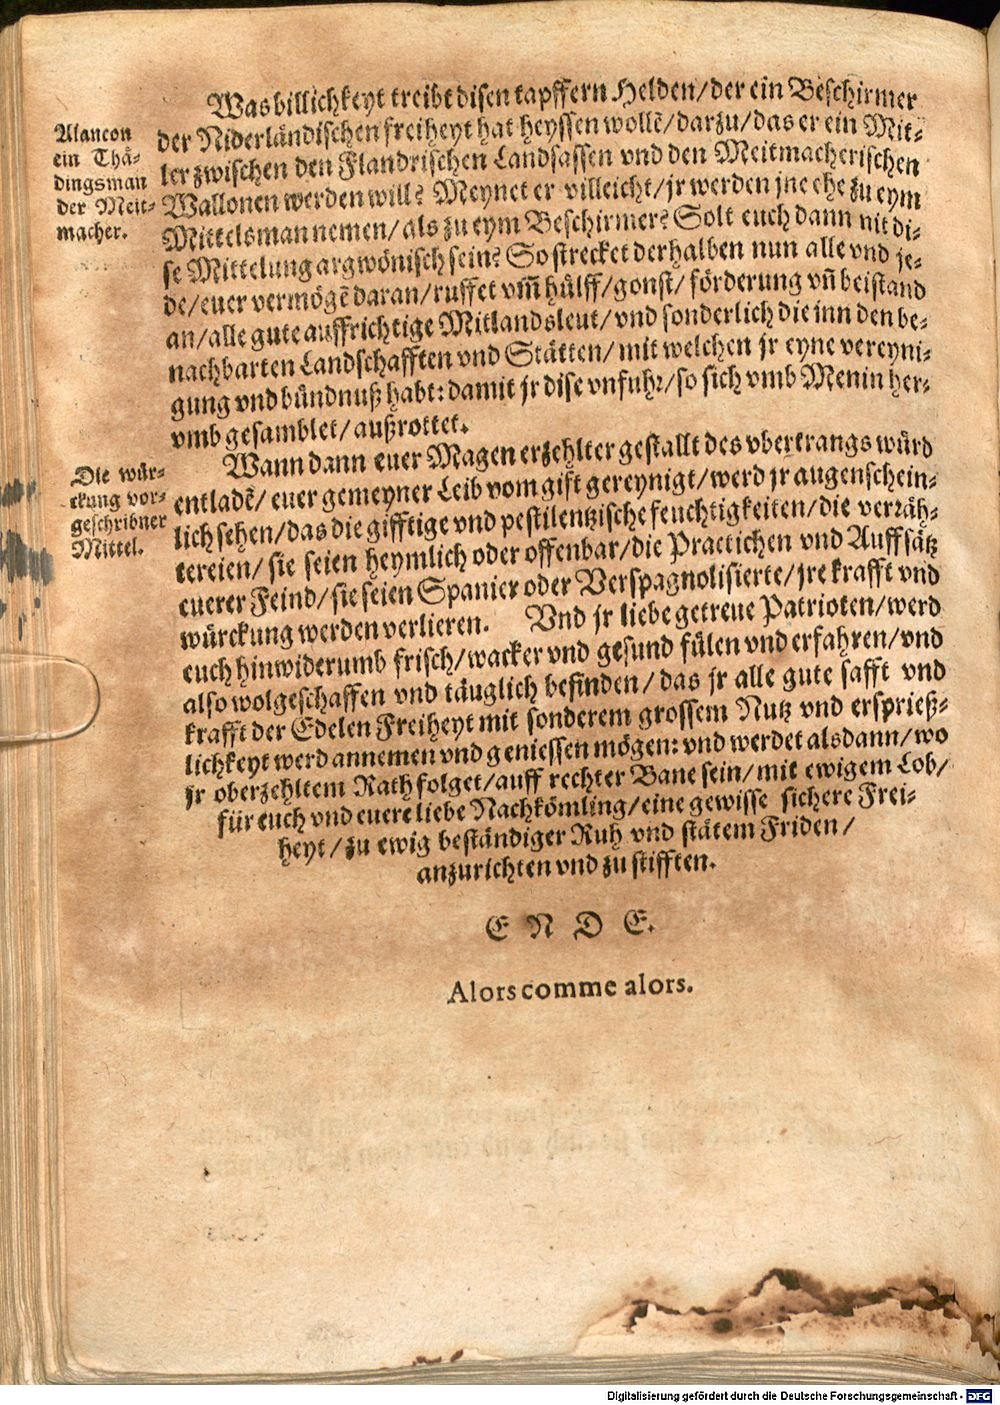 Alancon
ein Thä-
dingsman
der Meit-
macher.
Was billichkeyt treibt disen tapffern Helden/der ein Beschirmer
der Niderländischen freiheyt hat heyssen wollẽ/darzu/das er ein Mit-
ler zwischen den Flandrischen Landsassen vnd den Meitmacherischen
Wallonen werden will? Meynet er villeicht/jr werden jne ehe zu eym
Mittelsman nemen/als zu eym Beschirmer? Solt euch dann nit di-
se Mittelung argwönisch sein? So strecket derhalben nun alle vnd je-
de/euer vermögẽ daran/ruffet vm̃ hülff/gonst/förderung vñ beistand
an/alle gute auffrichtige Mitlandsleut/vnd sonderlich die inn den be-
nachbarten Landschafften vnd Stätten/mit welchen jr eyne vereyni-
gung vnd bündnuß habt: damit jr dise vnfuhr/so sich vmb Menin her-
vmb gesamblet/außrottet.
Die wür-
ckung vor-
geschribner
Mittel.
Wann dann euer Magen erzehlter gestallt des vbertrangs würd
entladẽ/euer gemeyner Leib vom gift gereynigt/werd jr augenschein-
lich sehen/das die gifftige vnd pestilentzische feuchtigkeiten/die verräh-
tereien/sie seien heymlich oder offenbar/die Practichen vnd Auffsätz
euerer Feind/sie seien Spanier oder Verspagnolisierte/jre krafft vnd
würckung werden verlieren. Vnd jr liebe getreue Patrioten/werd
euch hinwiderumb frisch/wacker vnd gesund fülen vnd erfahren/vnd
also wolgeschaffen vnd täuglich befinden/das jr alle gute safft vnd
krafft der Edelen Freiheyt mit sonderem grossem Nutz vnd ersprieß-
lichkeyt werd annemen vnd geniessen mögen: vnd werdet alsdann/wo
jr oberzehltem Rath folget/auff rechter Bane sein/mit ewigem Lob/
für euch vnd euere liebe Nachkömling/eine gewisse sichere Frei-
heyt/zu ewig beständiger Ruh vnd stätem Friden/
anzurichten vnd zu stifften.
E N D E.
Alors comme alors.
Digitalisierung gefördert durch die Deutsche Forschungsgemeinschaft - DFG